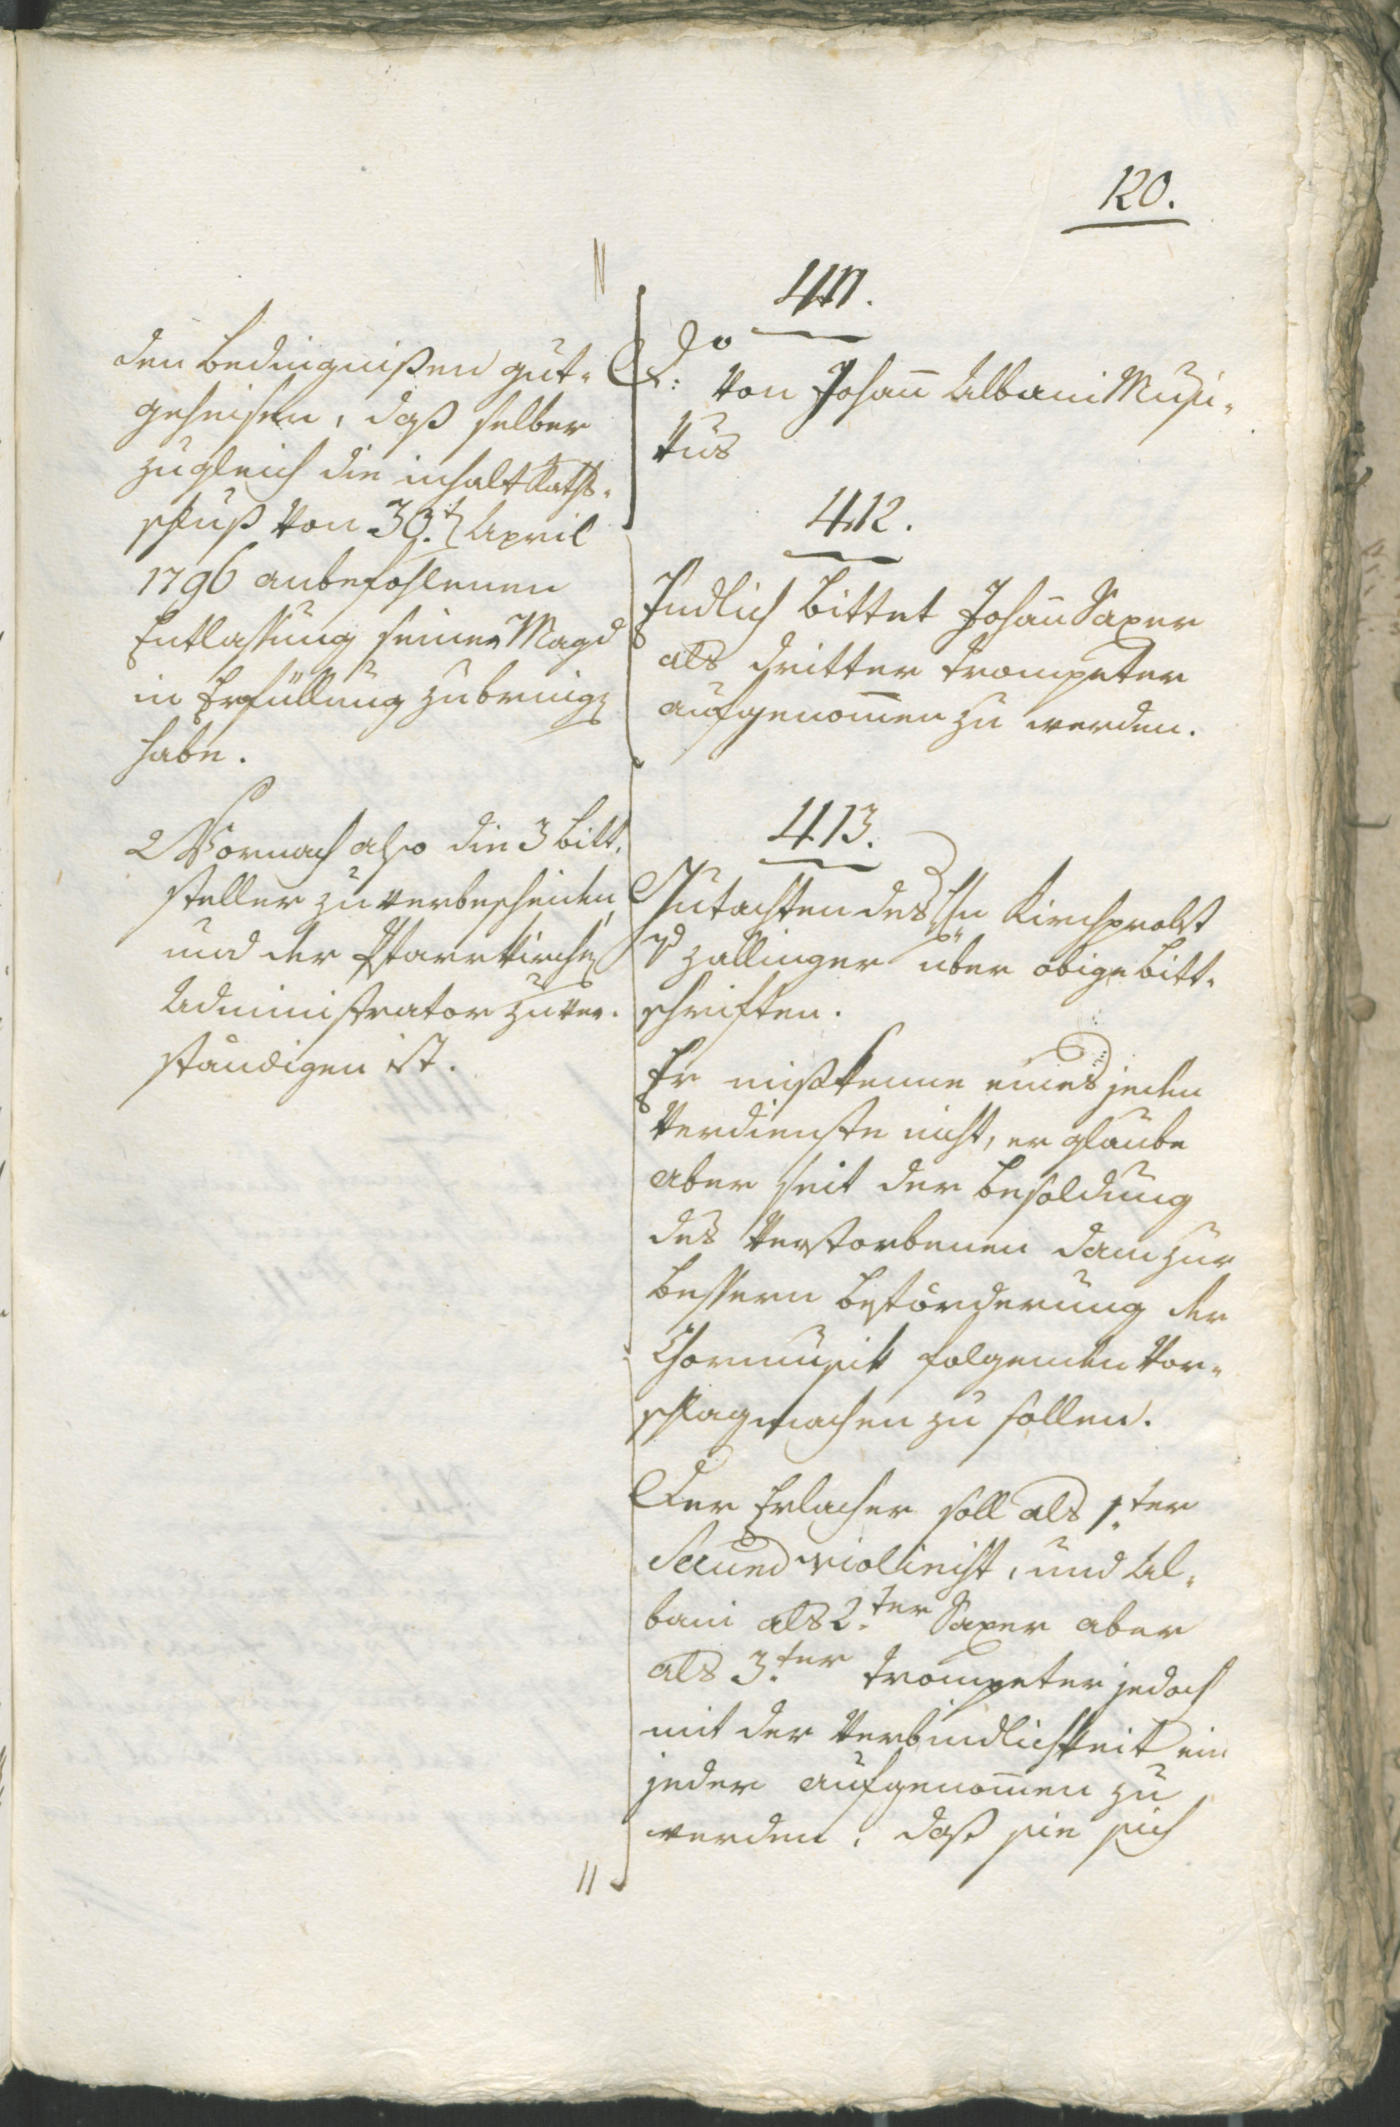 120.
den Bedingnißen gut-
geheisen, daß selber
zugleich die inhalt Raths-
schluß von 30.t April
1796 anbefohlenen
Entlassung seiner Magd
in Erfüllung zu bringen
habe.
Wornach also die 3 Bitt-
steller zu verbescheiden,
und der Pfarrkirchen
Administrator zu ver-
ständigen ist.
411.
do
von Johann Albani Musi-
kus
412.
Endlich bittet Johann Saxer
als dritter Trompeter
aufgenommen zu werden.
413.
Gutachten des Hn Kirchprobst
v Zallinger über obige Bitt-
schriften.
Er mißkenne eines jeden
Verdienste nicht, er glaube
aber seit der Besoldung
des Verstorbenen dann zur
bessern Beförderung der
Chormusik folgenden Vor-
schlag machen zu sollen.
Der Erlacher soll als 1.ter
Secund violinist, und Al-
bani als 2.ter Saxer aber
als 3.ter Trompeter jedoch
mit der Verbindlichkeit ein
jeder aufgenommen zu
werden, daß sie sich